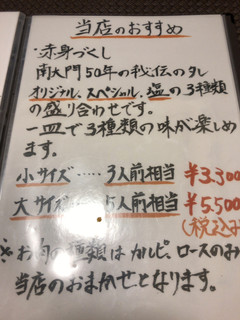 当店のおすすめ
・赤身づくし
南大門50年の秘伝のタレ
オリジナル、スペシャル、塩の3種類
の盛り合わせです。
一皿で3種類の味が楽しめ
ます。
小サイズ‥‥‥3人前相当 ¥3,300
大サイズ 5人前相当 ¥5,500
(税込み
※お肉の種類はカルビ、ロースのみ
当店のおまかせとなります。